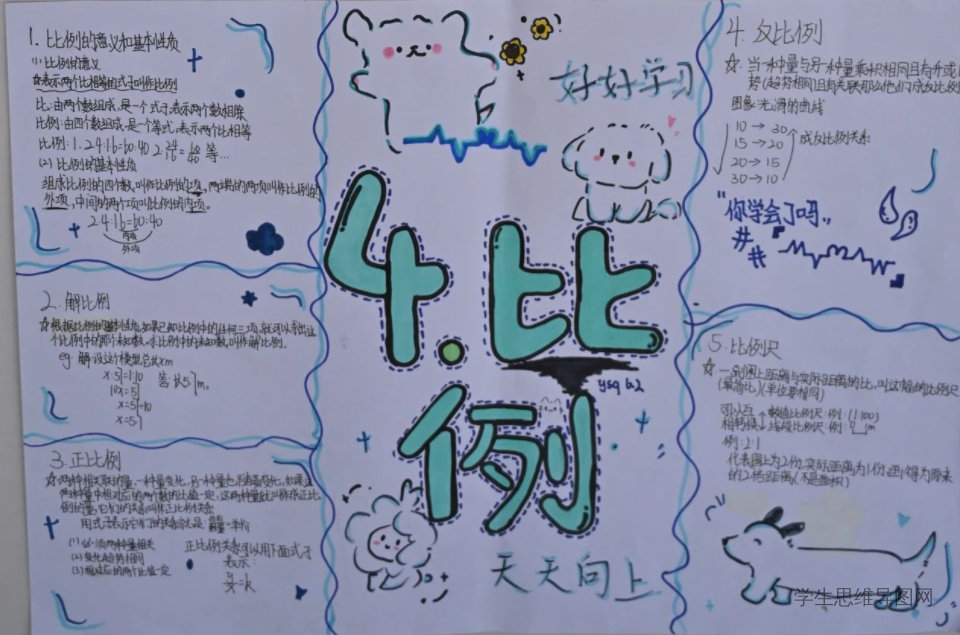 1. 比比例的意义和基本性质
(1) 比例的意义
☆表示两个比相等的式子叫作比例
比:由两个数组成,是一个式子,表示两个数相除
比例:由四个数组成,是一个等式,表示两个比相等
比例:1. 2.4:1.6=60:40 2. 2.4/1.6=60/40 等…
(2) 比例的基本性质
组成比例的四个数,叫作比例的项。两端的两项叫作比例的
外项,中间的两个项叫比例的内项。
2.4:1.6=60:40
内项
外项
2. 解比例
☆根据比例的基本性质,如果已知比例中的任何三项,就可以求出这
个比例中的那个未知数,求比例中的未知数,叫作解比例。
eg: 解:设这个模型总长xm
10x=57
3. 正比例
☆两种相关联的量,一种量变化,另一种量也随着变化,如果这
两种量中相对应的两个数的比值一定,这两种量就叫作成正比
例的量,它们的关系叫作正比例关系
用式子表示它们的关系就是:总价/数量=单价
(1) 必须两种量相关
(2) 变化趋势相同
(3) 相对应的两个比值一定
正比例关系可以用下面式子
表示:
y/x=k
好好学习
4.比
ysq 6.2
例
天天向上
4. 反比例
☆. 当一种量与另一种量乘积相同且有
势(趋势相同)且有关联那么他们成反比例
图象:光滑的曲线
10→30
15→20
20→15
30→10
成反比例关系
"你学会了吗"
5. 比例尺
☆ 一幅图上距离与实际距离的比,叫这幅的比例尺
(单位要相同)
可以互
相转换
数值比例尺 例:(1:100)
线段比例尺 例: m
例:2:1
代表图上为2份,实际距离为1份,画得为原来
的2倍距离(不是面积)
学生思维导图网